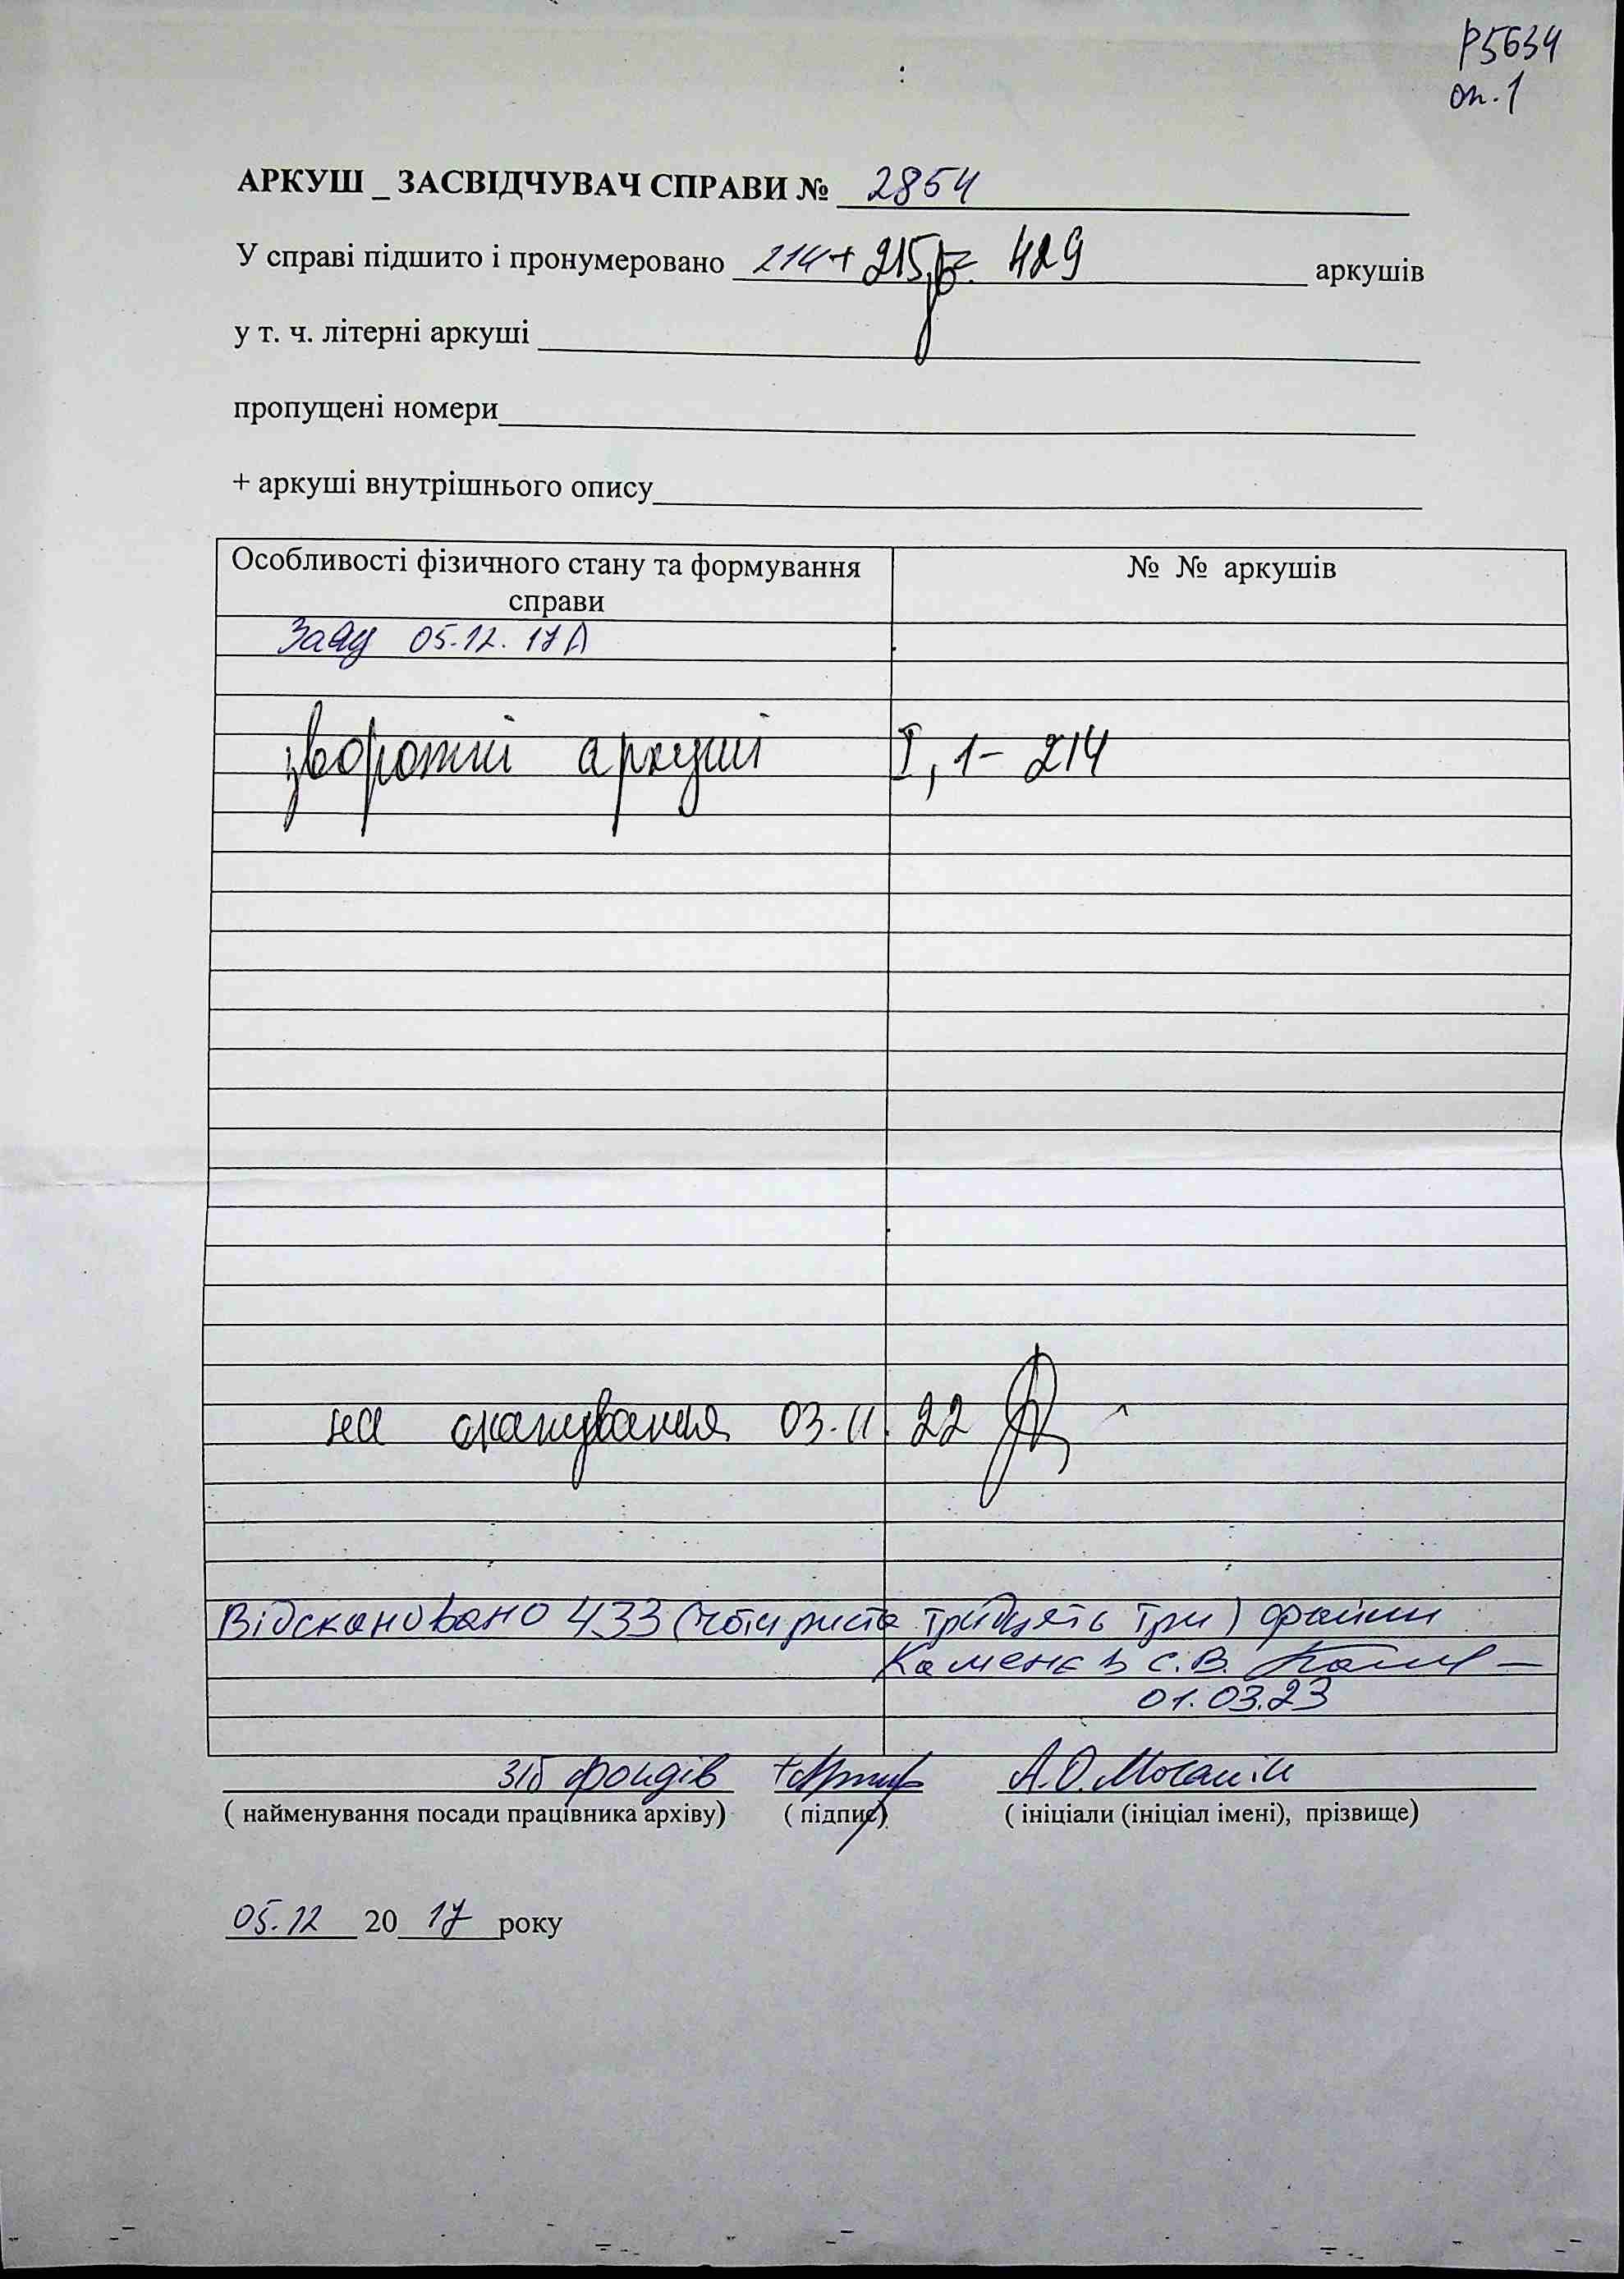 Р5634
оп.1
АРКУШ _ ЗАСВІДЧУВАЧ СПРАВИ № 2854
У справі підшито і пронумеровано 214+ 215 = 429 аркушів
у т. ч. літерні аркуші
пропущені номери
+ аркуші внутрішнього опису
Особливості фізичного стану та формування справи
№ № аркушів
05.12.17
зворотній аркуші I, 1- 214
на сканування 03.11.22
Відскановано 433 (чотириста тридцять три) файли
Каменєв С.В.
01.03.23
фондів А.О.
( найменування посади працівника архіву) ( підпис) ( ініціали (ініціал імені), прізвище)
05.12 20 17 року